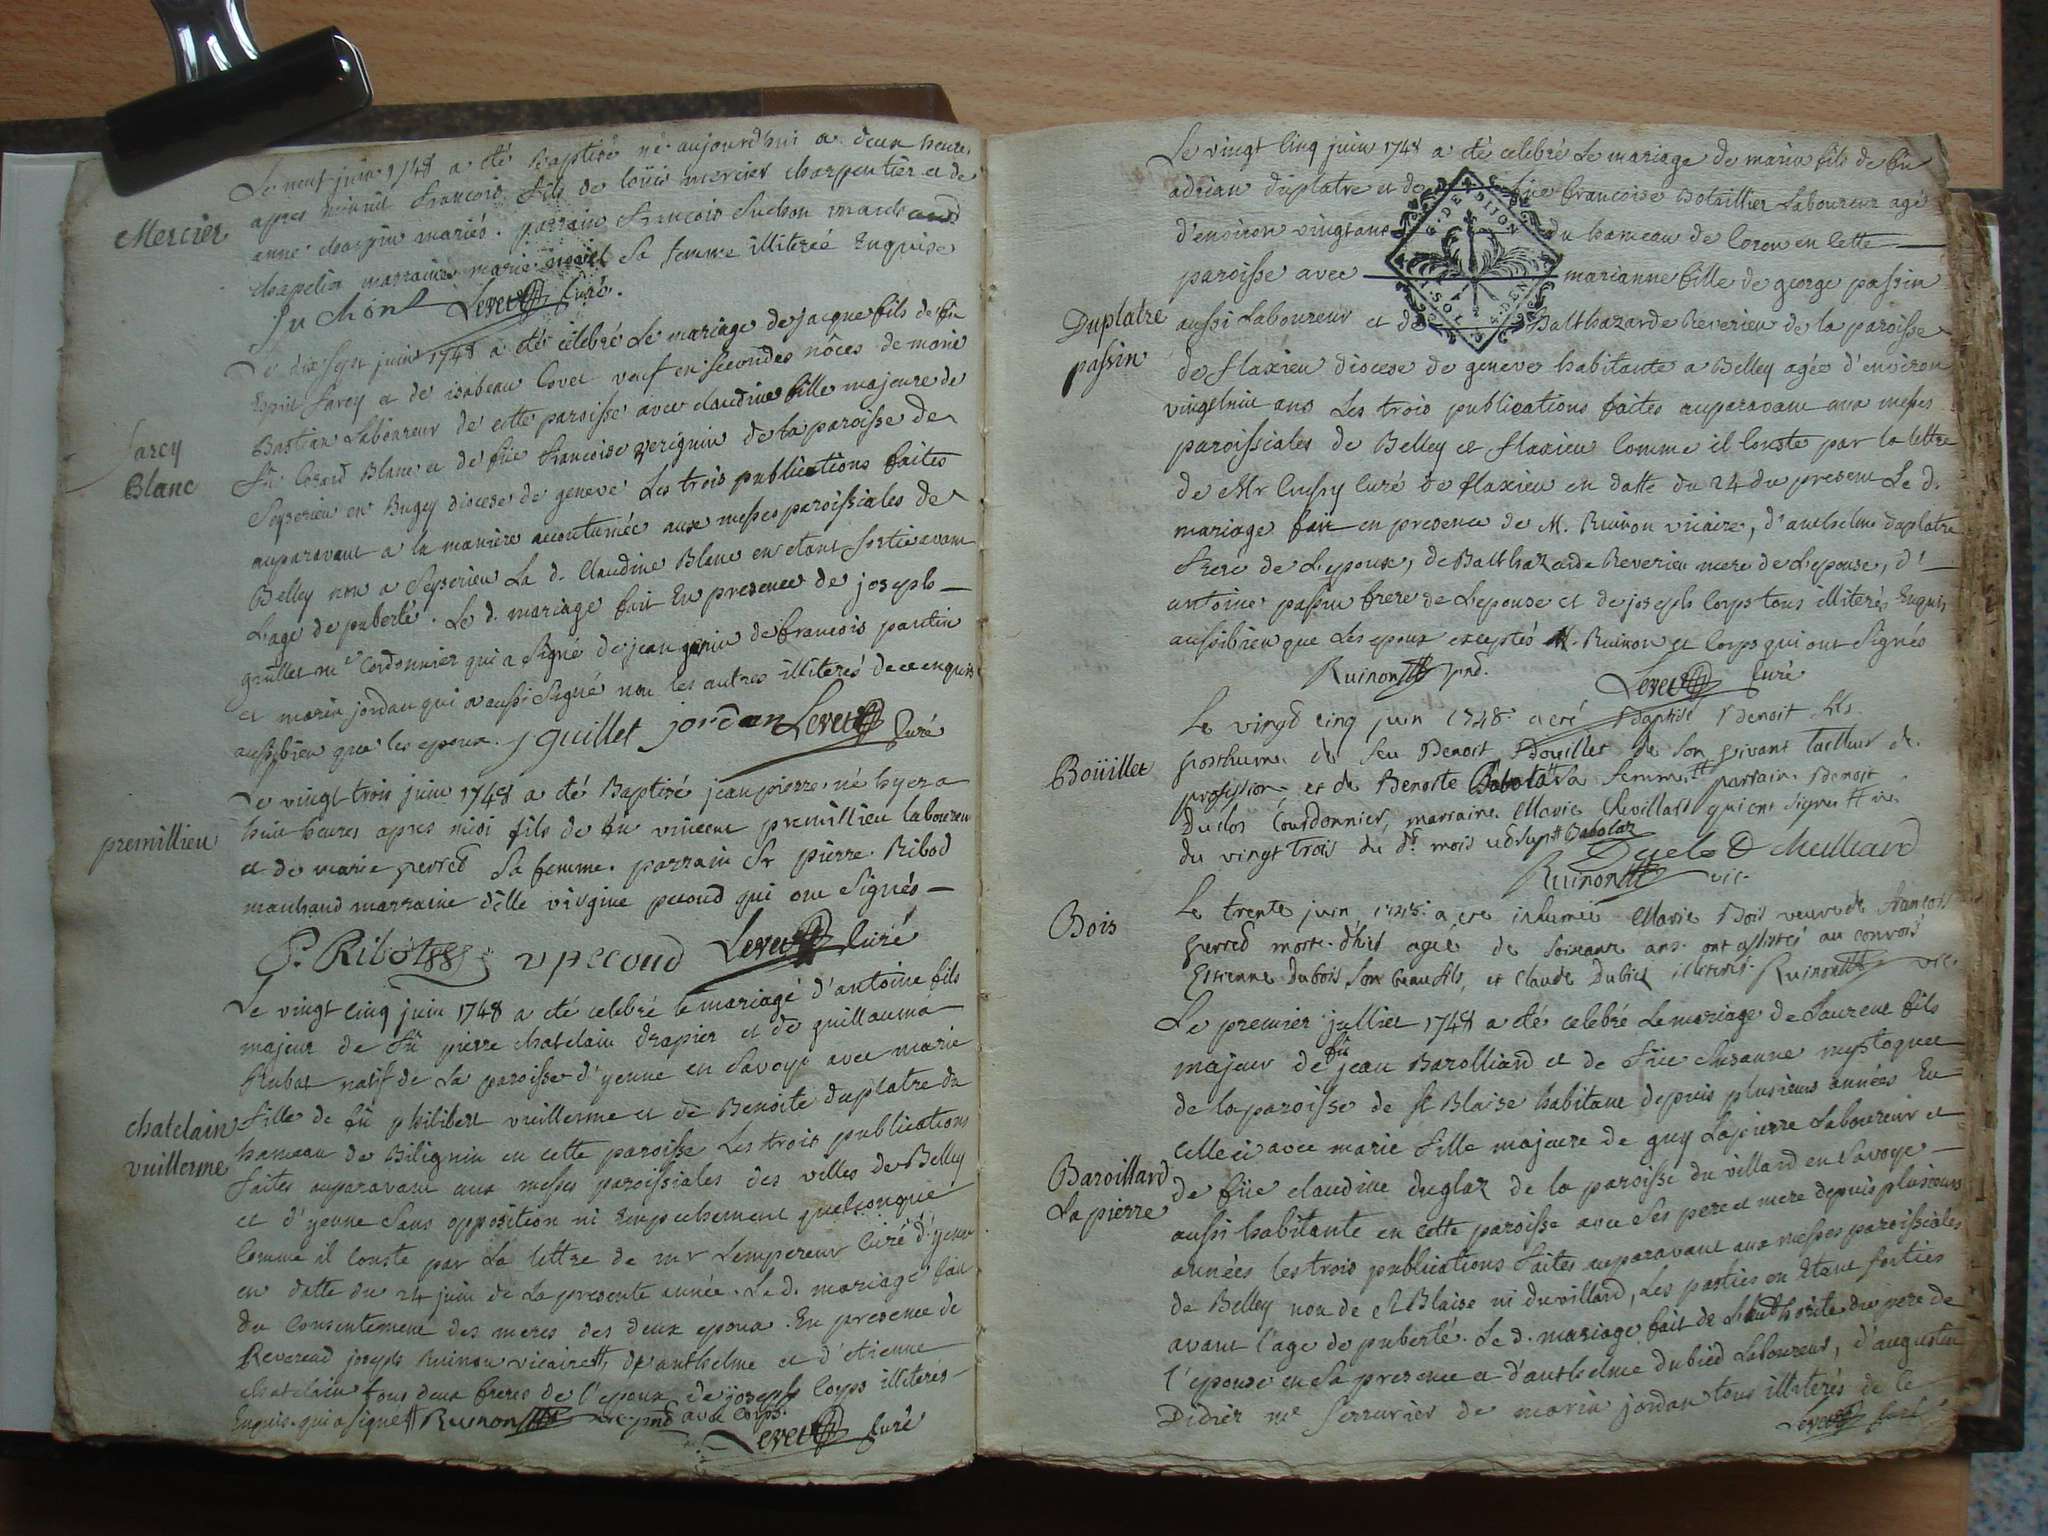 Le neuf juin 1748 a été Baptisé né aujourdhui a deux heures
apres minuit françois fils de loüis mercier charpentier et de
Mercier
anne charpin mariés. parrain françois Suchon marchand
chapelier marraine marie novel sa femme illiterée Enquise
Suchon Levet Curé.
Le dix sept juin 1748 a été célebré Le mariage de jacque fils de fû
Esprit Sarcy et de isabeau Covet veuf en secondes nôces de marie
Bastian Laboureur de cette paroisse avec claudine fille majeure de
Sarcy
Blanc
fû Blanc et de fûe francoise verignin de la paroisse de
Seyserieu en Bugey diocese de geneve Les trois publications faites
auparavant a la maniere accoutumée aux messes paroissiales de
Belley non a Seyserieu La d. Claudine Blanc en etant sortie avant
L'age de puberté. Le d. mariage fait En presence de joseph
guillet me Cordonnier qui a signé de jean genin de francois pantin
et marin jordan qui a aussi signé non les autres illiterés de ce enquis
aussibien que les epoux. j guillet jordan Levet Curé
Le vingt trois juin 1748 a été Baptisé jean pierre né hyer a
huit heures apres midi fils de fû vincent premillieu laboureur
premillieu
et de marie perred sa femme. parrain Sr pierre Ribod
marchand marraine dlle virgine pecoud qui ont signés
P. Ribot v pecoud Levet Curé
Le vingt cinq juin 1748 a été celebré le mariage d'antoine fils
majeur de fû pierre chatelain drapier et de guillauma
Rubat natif de La paroisse d'yenne en Savoye avec marie
fille de fû philibert vuillerme et de Benoite duplatre du
chatelain
vuillerme
hameau de Bilignin en cette paroisse Les trois publications
faites auparavant aux messes paroissiales des villes de Belley
et d'yenne sans opposition ni Empechement quelconque
Comme il conste par La lettre de mr Lempereur Curé d'yenne
en datte du 24 juin de La presente année. Le d. mariage fait
du Consentement des meres des deux epoux. En presence de
Reverend joseph Ruinon vicaire, d'anthelme et d'etienne
chatelain tous deux freres de l'epoux de joseph Corps illiterés
Enquis. qui a signé Ruinon avec Corps.
Levet Curé
Le vingt Cinq juin 1748 a été celebré Le mariage de marin fils de fû
adrian duplatre et de fûe francoise Botaillier Laboureur agé
d'environ vingt ans du hameau de Coron en Cette
paroisse avec marianne fille de george passin
DE DIJON
Duplatre
passin
aussi Laboureur et de Balthazarde Reverieu de la paroisse
de flaxieu diocese de geneve habitante a Belley agée d'environ
vingthuit ans Les trois publications faites auparavant aux messes
paroissiales de Belley et flaxieu Comme il Conste par la lettre
de Mr Cussy Curé de flaxieu en datte du 24 du present Le d.
mariage fait en presence de M. Ruinon vicaire, d'anthelme duplatre
frere de L'epoux, de Balthazarde Reverieu mere de L'epouse, d'
antoine passin frere de L'epouse et de joseph Corps tous illiterés Enquis
aussibien que Les epoux exceptés M. Ruinon et Corps qui ont signés
Ruinon Levet Curé
Le vingt cinq juin 1748. a eté Baptisé Benoit fils
Boüillet
posthume de feu Benoit Boüillet de son vivant tailleur de
profession et de Benoite sa femme parrain Benoit
Duclos Courdonnier, marraine Marie Chevillard qui ont signés
du vingt trois du dt. mois Babolaz
Duclo Chevillard
Ruinon vic.
Bois
Le trente juin 1748. a eté inhumée Marie Bois veuve de François
perred morte d'hier agée de soixante ans. ont assistés au convois
Estienne Dubois son beau fils, et Claude Dubiez illiterés. Ruinon vic.
Le premier julliet 1748 a été celebré Le mariage de Laurent fils
majeur de fû jean Barolliard et de fûe Susanne
de la paroisse de St Blaise habitant depuis plusieurs années En
Celle ci avec marie fille majeure de guy Lapierre Laboureur et
Baroillard
La pierre
de fûe claudine duglaz de la paroisse du villard en Savoye
aussi habitante en Cette paroisse avec Ses pere et mere depuis plusieurs
années les trois publications faites auparavant aux messes paroissiales
de Belley non de St Blaise ni du villard, Les parties en Etant sorties
avant l'age de puberté. Le d. mariage fait de L'authorité du pere de
l'epouse en sa presence et d'anthelme dubied Laboureur, d'augustin
Didier me serrurier de marin jordan tous illiterés de Ce
Levet Curé